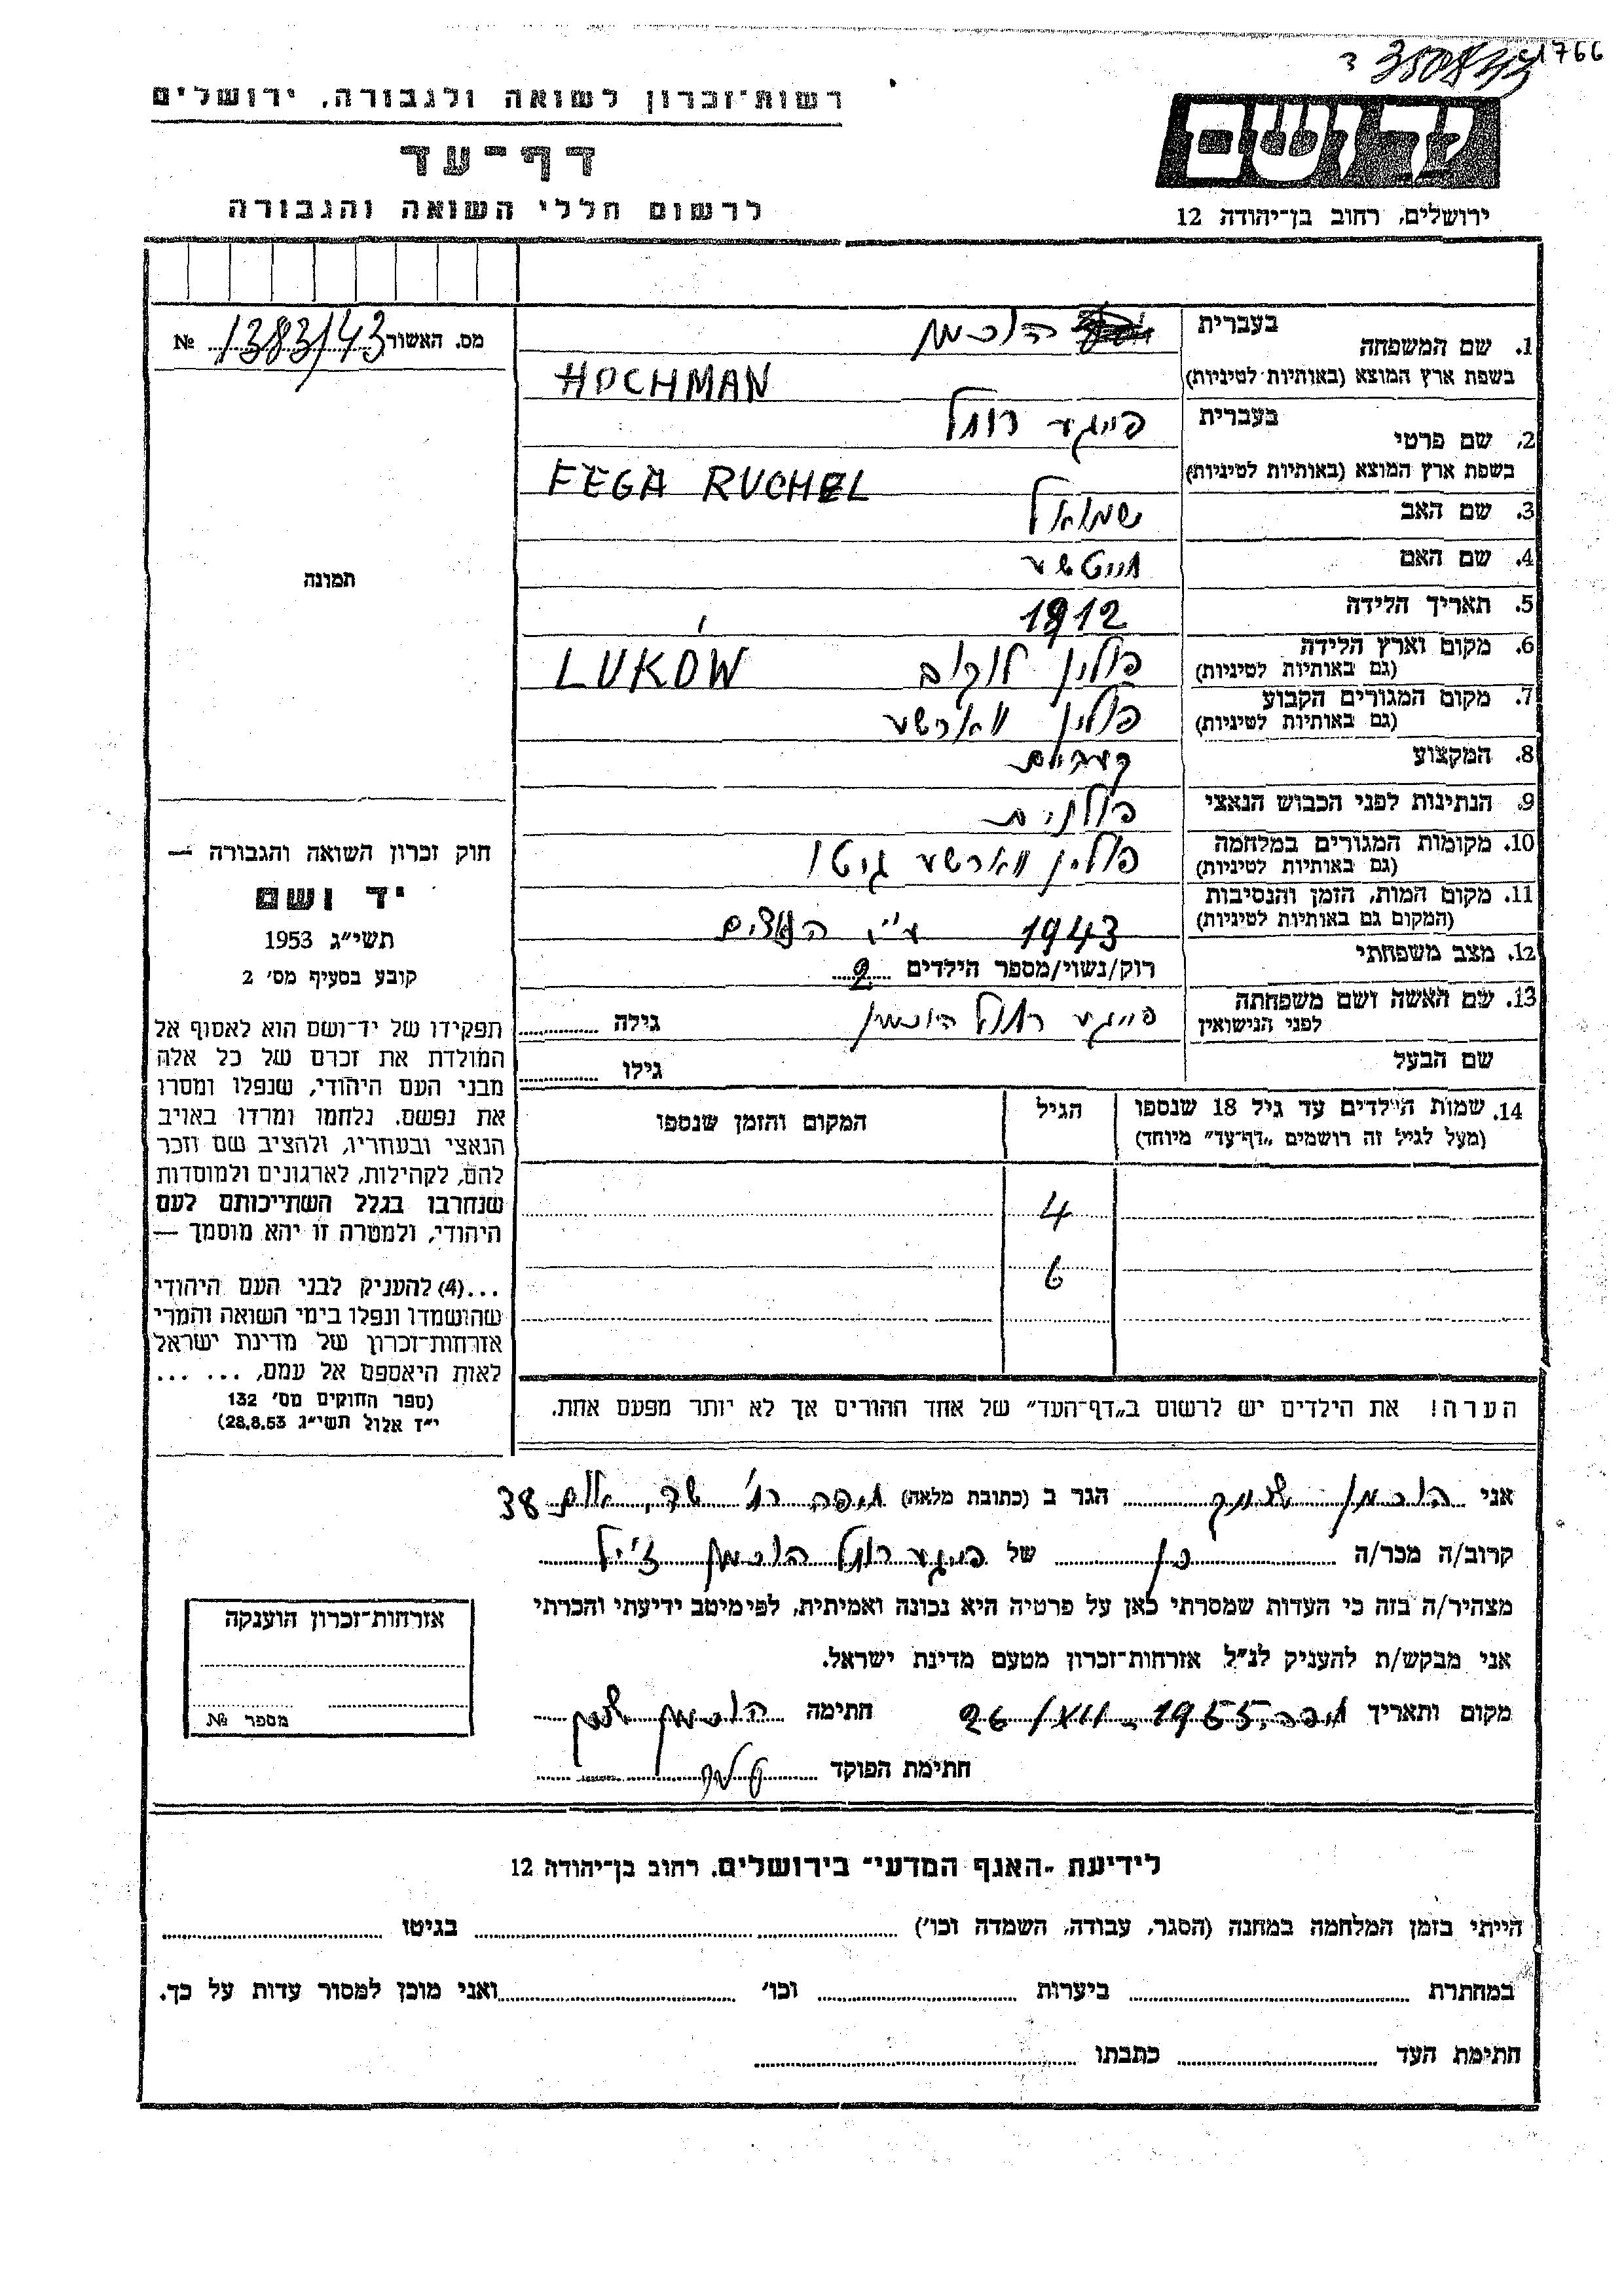 1766
רשות־זכרון לשואה ולגבורה, ירושלים
דף־עד
לרשום חללי השואה והגבורה
ידושם
ירושלים, רחוב בן־יהודה 12
מס. האשור 1383/43 №
תמונה
1. שם המשפחה
בעברית הוכמן
בשפת ארץ המוצא (באותיות לטיניות) HOCHMAN
2. שם פרטי
בעברית פייגע רוחל
בשפת ארץ המוצא (באותיות לטיניות) FEGA RUCHEL
3. שם האב שמואל
4. שם האם
5. תאריך הלידה 1912
6. מקום וארץ הלידה (גם באותיות לטיניות) פולין לוקוב LUKÓW
7. מקום המגורים הקבוע (גם באותיות לטיניות) פולין ווארשע
8. המקצוע
9. הנתינות לפני הכבוש הנאצי פולנית
10. מקומות המגורים במלחמה (גם באותיות לטיניות) פולין ווארשע גיטו
11. מקום המות, הזמן והנסיבות (המקום גם באותיות לטיניות) 1943 ע"י הנאצים
12. מצב משפחתי רוק/נשוי/מספר הילדים 2
13. שם האשה ושם משפחתה לפני הנישואין פייגע רוחל הוכמן גילה
שם הבעל גילו
14. שמות הילדים עד גיל 18 שנספו (מעל לגיל זה רושמים „דף־עד" מיוחד) הגיל המקום והזמן שנספו
4
6
הערה! את הילדים יש לרשום ב„דף־העד" של אחד ההורים אך לא יותר מפעם אחת.
חוק זכרון השואה והגבורה —
יד ושם
תשי"ג 1953
קובע בסעיף מס' 2
תפקידו של יד־ושם הוא לאסוף אל
המולדת את זכרם של כל אלה
מבני העם היהודי, שנפלו ומסרו
את נפשם, נלחמו ומרדו באויב
הנאצי ובעוזריו, ולהציב שם וזכר
להם, לקהילות, לארגונים ולמוסדות
שנחרבו בגלל השתייכותם לעם
היהודי, ולמטרה זו יהא מוסמך —
...(4) להעניק לבני העם היהודי
שהושמדו ונפלו בימי השואה והמרי
אזרחות־זכרון של מדינת ישראל
לאות היאספם אל עמם, ... ...
(ספר החוקים מס' 132
י"ז אלול תשי"ג 28.8.53)
אני הוכמן הגר ב (כתובת מלאה) חיפה רח' 38
קרוב/ה מכר/ה בן של פייגע רוחל הוכמן ז"ל
מצהיר/ה בזה כי העדות שמסרתי כאן על פרטיה היא נכונה ואמיתית, לפי מיטב ידיעתי והכרתי
אני מבקש/ת להעניק לנ"ל אזרחות־זכרון מטעם מדינת ישראל.
מקום ותאריך חיפה, 26/VII 1955 חתימה הוכמן
חתימת הפוקד
אזרחות־זכרון הוענקה
מספר №
לידיעת "האגף המדעי" בירושלים, רחוב בן־יהודה 12
הייתי בזמן המלחמה במחנה (הסגר, עבודה, השמדה וכו') בגיטו
במחתרת ביערות וכו' ואני מוכן למסור עדות על כך.
חתימת העד כתבתו